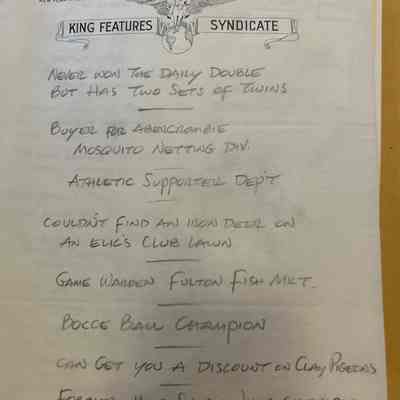 KING FEATURES SYNDICATE
NEVER WON THE DAILY DOUBLE
BUT HAS TWO SETS OF TWINS
BUYER FOR ABERCROMBIE
MOSQUITO NETTING DIV.
ATHLETIC SUPPORTER DEP'T
COULDN'T FIND AN IRON DEER ON
AN ELK'S CLUB LAWN
GAME WARDEN FULTON FISH MKT.
BOCCE BALL CHAMPION
CAN GET YOU A DISCOUNT ON CLAY PIGEONS